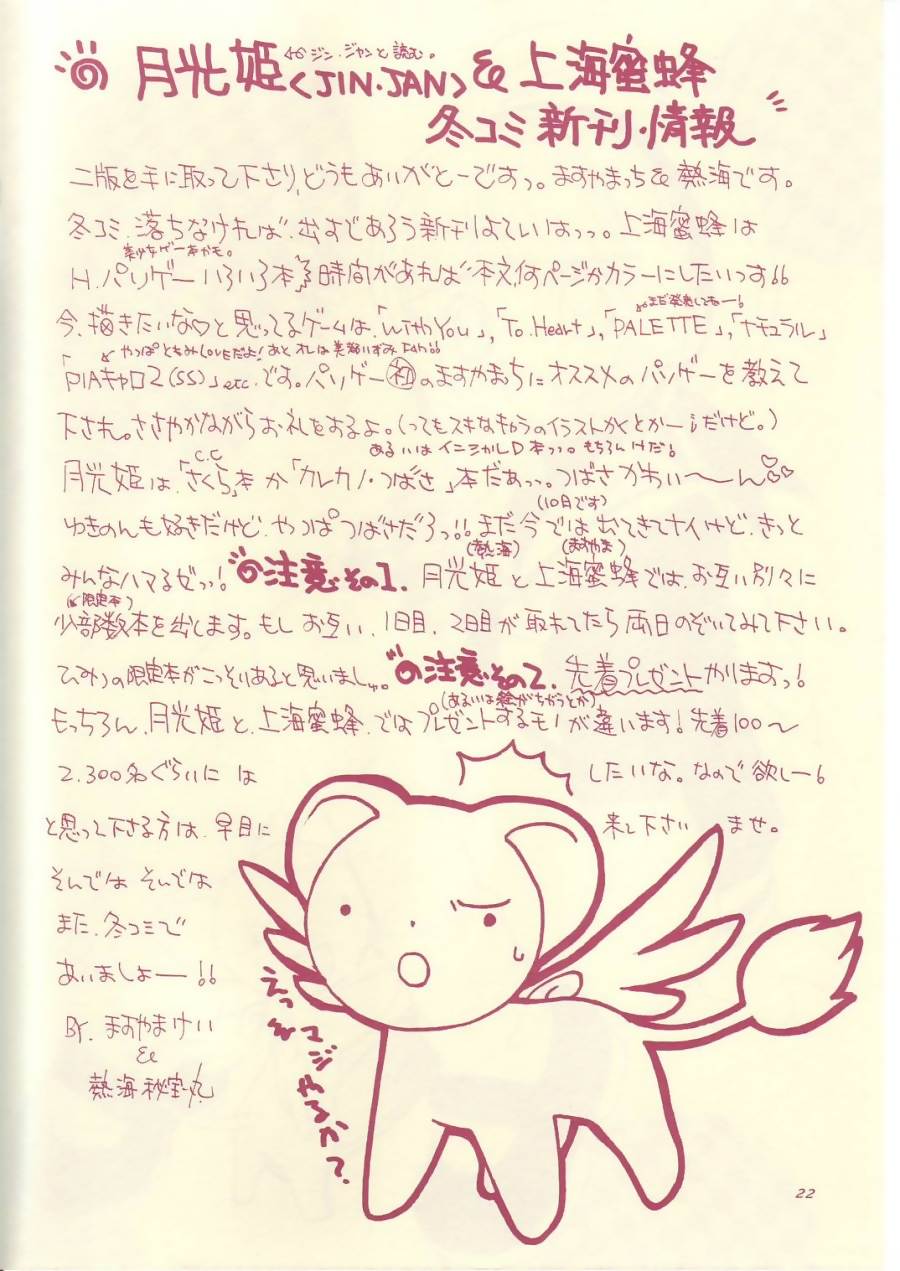 ←ジン・ジャンと読む。
月光姫〈JIN・JAN〉& 上海蜜蜂
冬コミ 新刊・情報
二版を手に取って下さり、どうもありがとーですっ。ますやまっち&熱海です。
冬コミ、落ちなければ、出すであろう新刊よていはっっ。上海蜜蜂は
美少女ゲー本かも。
H.パソゲーいろいろ本 時間があれば本文何ページかカラーにしたいっす!!
まだ発売してねー!
今、描きたいな♡と思ってるゲームは、「With You」、「To Heart」、「PALETTE」、「ナチュラル」
「PIAキャロ2(SS)」etc.です。パソゲー初のますやまっちにオススメのパソゲーを教えて
下され。ささやかながらお礼をするよ。(ってもスキなキャラのイラストかくとかー!だけど。)
あるいはイニシャルD本っっ。もちろんけだ!
C.C
月光姫は、「さくら」本か「カレカノ・つばさ」本だぁっっ。つばさかわいい〜ん♡♡
(10日です)
ゆきのんも好きだけど、やっぱつばさだろっ!!まだ今では出てきてナイけど、きっと
(熱海) (ますやま)
みんなハマるぜっっ! 注意その1. 月光姫と上海蜜蜂では、お互い別々に
(限定本)
少部数本を出します。もしお互い、1日目、2日目が取れてたら両日のぞいてみて下さい。
ひみつの限定本がこっそりあると思いましゅ。 注意その2. 先着プレゼントやりますっ!
(あるいは絵がちがうとか)
もっちろん、月光姫と、上海蜜蜂、ではプレゼントするモノが違います!先着100〜
2.300名ぐらいにはしたいな。なので欲しー!
と思って下さる方は、早目に来て下さいませ。
そんではそんでは
また、冬コミで
あいましょー!!
By. ますやまけい
&
熱海秘宝丸
えっマジやるか?
22